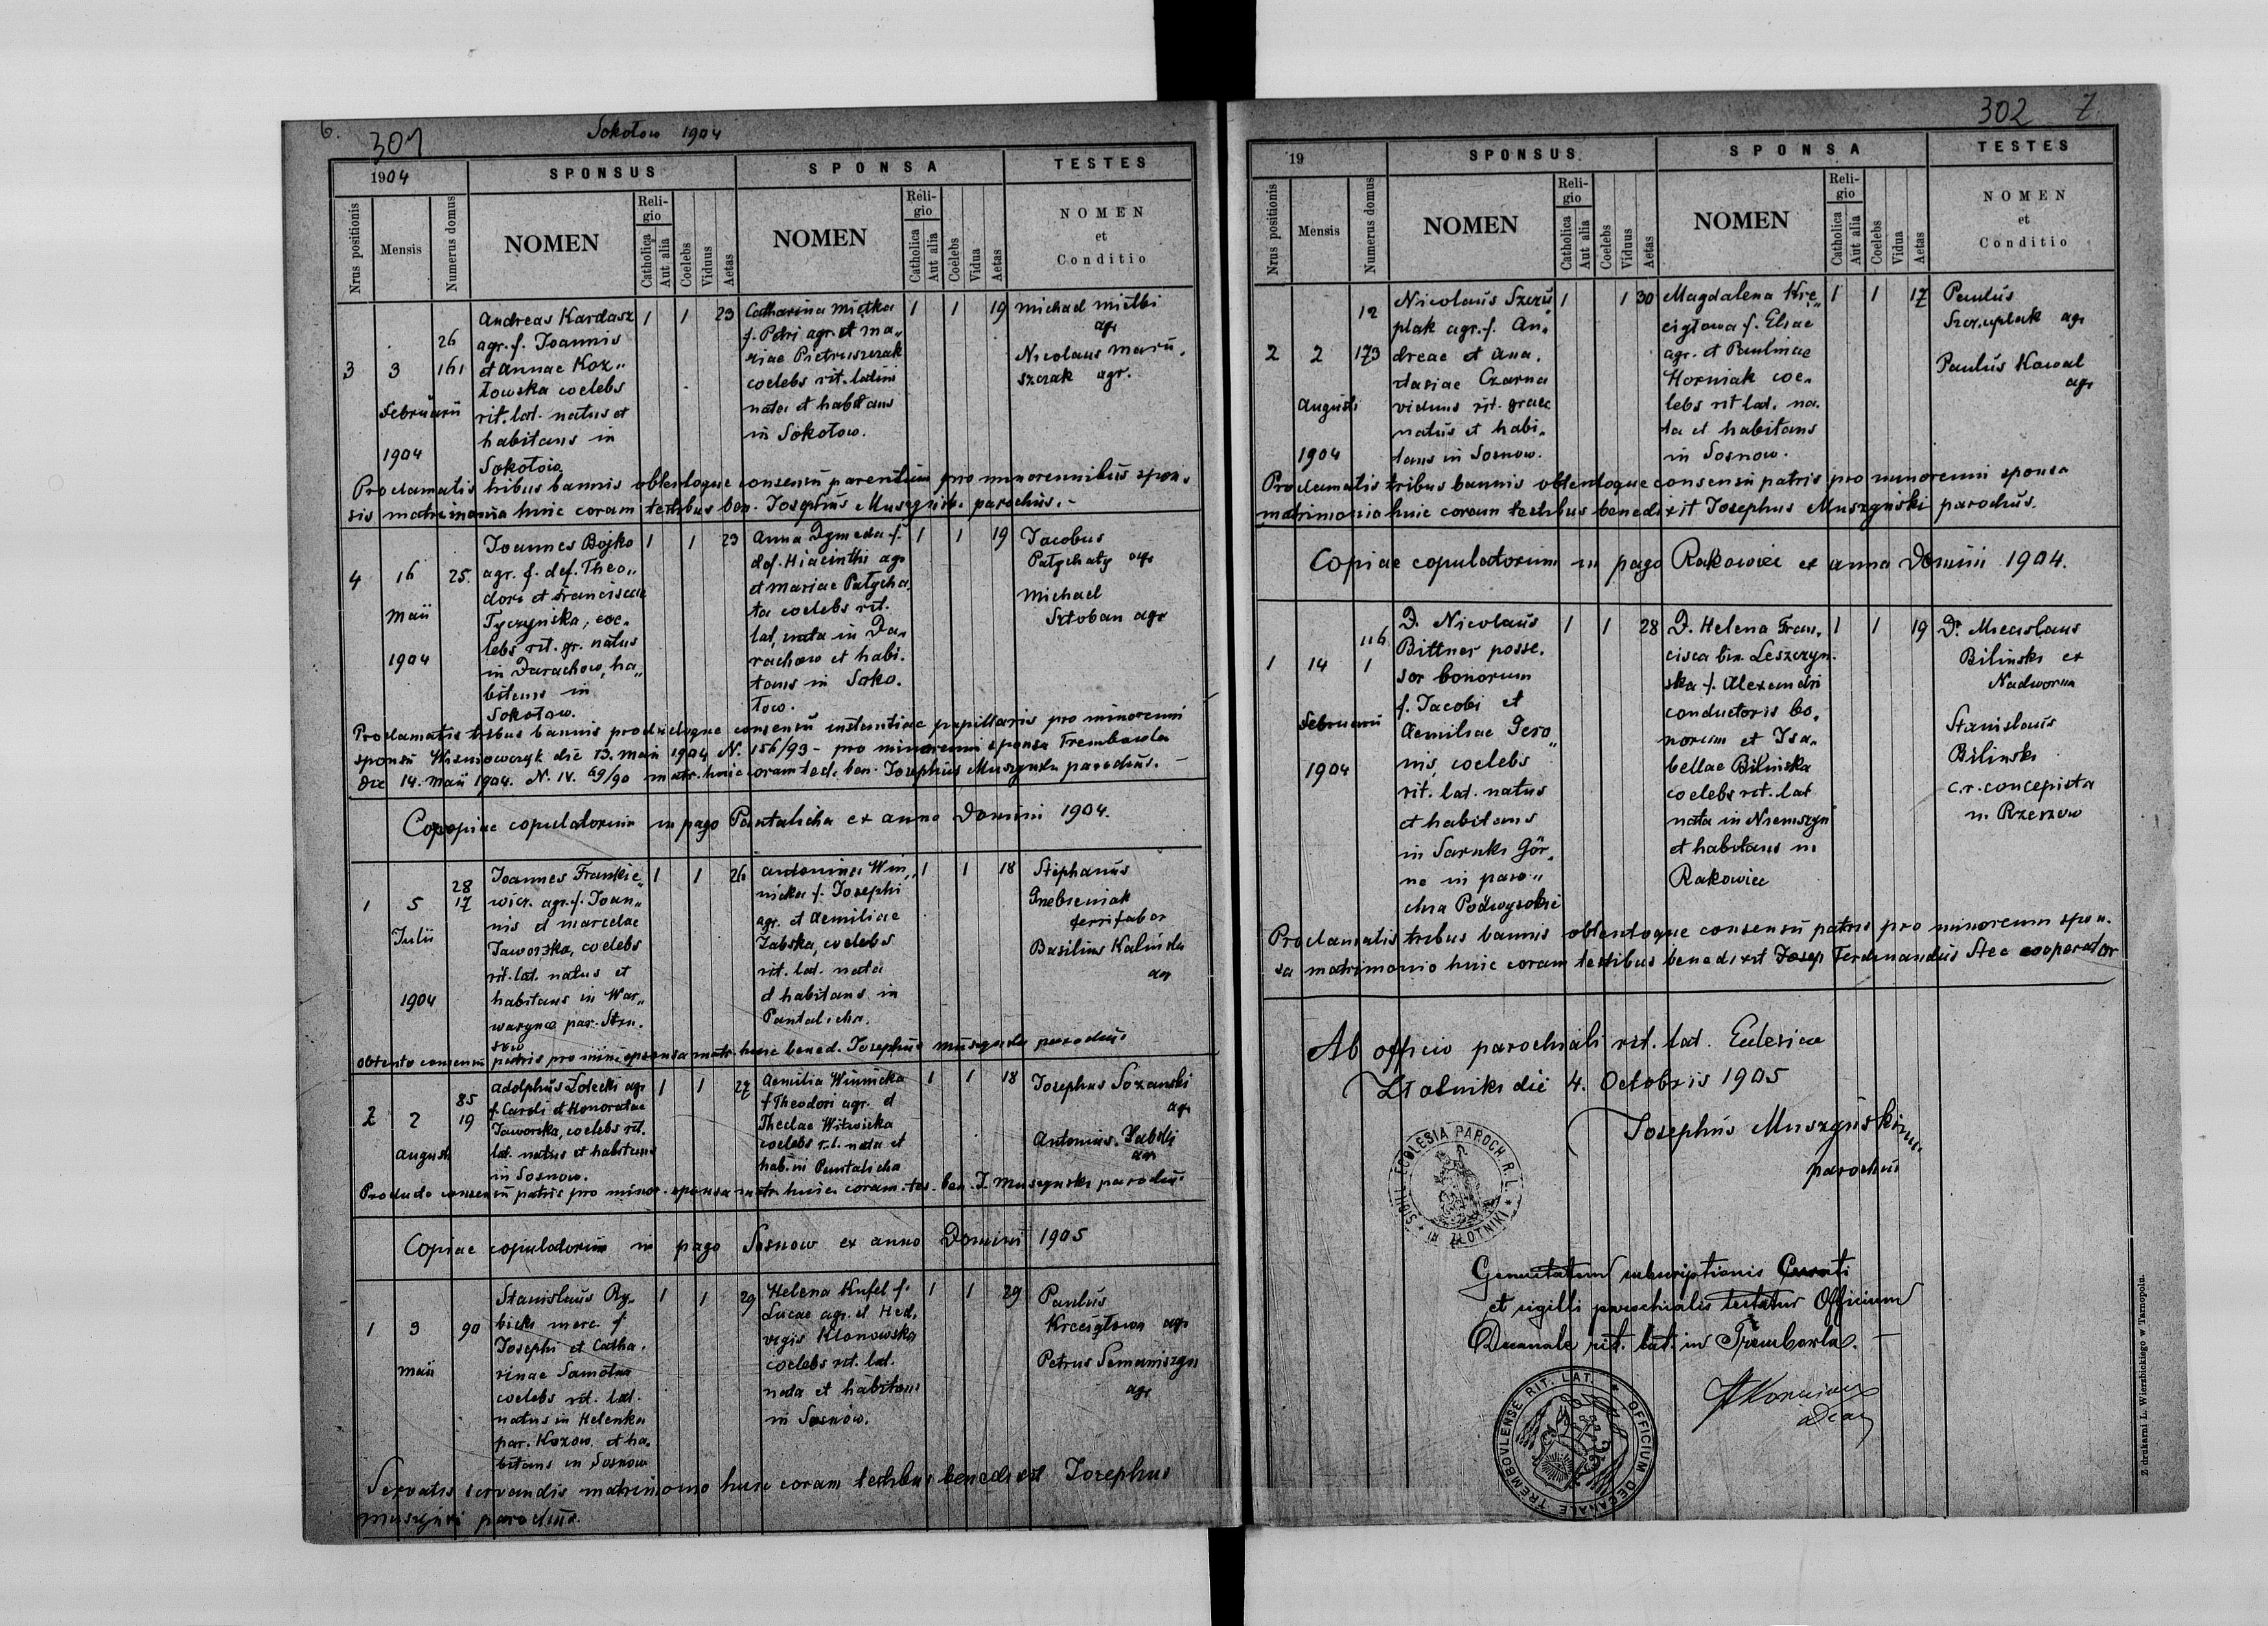 6.
301
Sokołow 1904
1904
SPONSUS
SPONSA
TESTES
Nrus positionis
Mensis
Numerus domus
NOMEN
Religio
Catholica
Aut alia
Coelebs
Viduus
Aetas
NOMEN
Religio
Catholica
Aut alia
Coelebs
Vidua
Aetas
NOMEN
et
Conditio
3
3
Februarii
1904
26
161
Andreas Kardasz
agr. f. Joannis
et Annae Koz„
łowska coelebs
rit. lat. natus et
habitans in
Sokołow.
1
1
23
Catharina Miętka
f. Petri agr. et Ma„
riae Pietruszczak
coelebs rit. latini
nata et habitans
in Sokołow.
1
1
19
Michael
agr
Nicolaus Maru„
szczak agr.
Proclamatis tribus bannis obtentoque consensu parentum pro minorennibus spon„
sis matrimonia huic coram testibus ben. Josephus Muszyński parochus. -
4
16
Maii
1904
25.
Joannes Bojko
agr. f. def. Theo„
dori et Franciscae
Tyczyńska, coe„
lebs rit. gr. natus
in Darachow, ha„
bitans in
Sokołow.
1
1
23
Anna Dymeda f.
def. Hiacinthi agr
et Mariae Patycha„
ta coelebs rit.
lat. nata in Da„
rachow et habi„
tans in Soko„
łow.
1
1
19
Jacobus
Patychaty agr
Michael
Sztoban agr
Proclamatis tribus bannis productoque consensu instantiae pupillaris pro minorenni
sponso Wiśniowczyk die 13. Maii 1904 N. 156/93 - pro minorenni sponsa Trembowla
die 14. Maii 1904. N. IV. 69/90 matr. huic coram test. ben. Josephus Muszyński parochus. -
Copopiae copulatorum in pago Pantalicha ex anno Domini 1904.
1
5
Julii
1904
28
17
Joannes Frankie„
wicz. agr. f. Joan„
nis et Marcelae
Jaworska, coelebs
rit. lat. natus et
habitans in War„
warynce par. Stru„
sow
1
1
26
Antonina Win„
nicka f. Josephi
agr. et Aemiliae
Żabska, coelebs
rit. lat. nata
et habitans in
Pantalicha.
1
1
18
Stephanus
Grebieniak
ferrifabor
Basilius Kalinda
agr
Obtento consensu patris pro minor. sponsa matr. huic bened. Josephus Muszyński parochus
2
2
Augusti
85
19
Adolphus Łotecki agr
f. Caroli et Honoratae
Jaworska, coelebs rit.
lat. natus et habitans
in Sosnow.
1
1
27
Aemilia Winnicka
f. Theodori agr. et
Theclae Witwicka
coelebs r.l. nata et
hab. in Pantalicha
1
1
18
Josephus Sozanski
agr
Antonius Żabski
agr
Producto consensu patris pro minor. sponsa matr. huic coram. tes. ben. J. Muszynski parochus
Copiae copulatorum in pago Sosnow ex anno Domini 1905
1
3
Maii
90
Stanislaus Ry„
bicki merc. f.
Josephi et Catha„
rinae Samotna
coelebs rit. lat.
natus in Helenka
par. Kozow. et ha„
bitans in Sosnow
1
1
29
Helena Kufel f.
Lucae agr. et Hed„
vigis Klonowska
coelebs rit. lat.
nata et habitans
in Sosnow.
1
1
29
Paulus
Krecigłowa agr
Petrus Semaniszyn
agr
Servatis servandis matrimonio huic coram testibus benedixit Josephus
Muszyński parochus.
302
7
19
SPONSUS.
SPONSA
TESTES
Nrus positionis
Mensis
Numerus domus
NOMEN
Religio
Catholica
Aut alia
Coelebs
Viduus
Aetas
NOMEN
Religio
Catholica
Aut alia
Coelebs
Vidua
Aetas
NOMEN
et
Conditio
2
2
Augusti
1904
12
173
Nicolaus Szczu„
plak agr. f. An„
dreae et Ana„
stasiae Czarna
viduus rit. graec
natus et habi„
tans in Sosnow.
1
1
30
Magdalena Kre„
cigłowa f. Eliae
agr. et Paulinae
Horniak coe„
lebs rit lat. na„
ta et habitans
in Sosnow.
1
1
17
Paulus
Szczuplak agr
Paulus Kowal
agr
Proclamatis tribus bannis obtentoque consensu patris pro minorenni sponsa
matrimonia huic coram testibus benedixit Josephus Muszyński parochus.
Copiae copulatorum in pago Rakowiec ex anno Domini 1904.
1
14
Februarii
1904
116
1
D. Nicolaus
Bittner posse„
sor bonorum
f. Jacobi et
Aemiliae Gero„
nis, coelebs
rit. lat. natus
et habitans
in Sarnki Gór„
ne in paro„
chia Podwysokie
1
1
28
D. Helena Fran„
cisca bin. Leszczyn„
ska f. Alexandri
conductoris bo„
norum et Isa„
bellae Bilinska
coelebs rit. lat
nata in Niemszyn
et habitans in
Rakowiec
1
1
19
Dr Mieceslaus
Bilinski ex
Nadworna
Stanislaus
Bilinski
c.r. concepista
in Rzeszow
Proclamatis tribus bannis obtentoque consensu patris pro minorenni spon„
sa matrimonio huic coram testibus benedixit Josep Ferdinandus Stec cooperator
Ab officio parochiali rit. lat. Eclesiae
Złotniki die 4. Octobris 1905
Josephus Muszyński
parochus
SIGILL. ECCLESIA PAROCH. R. L. IN ZŁOTNIKI
Genuitatem subscriptionis Curati
et sigilli parochialis testatur Officium
Decanale rit. lat. in Trembowla. -
OFFICIUM DECANALE TREMBOVLENSE RIT. LAT.
Z drukarni L. Wierzbickiego w Tarnopolu.